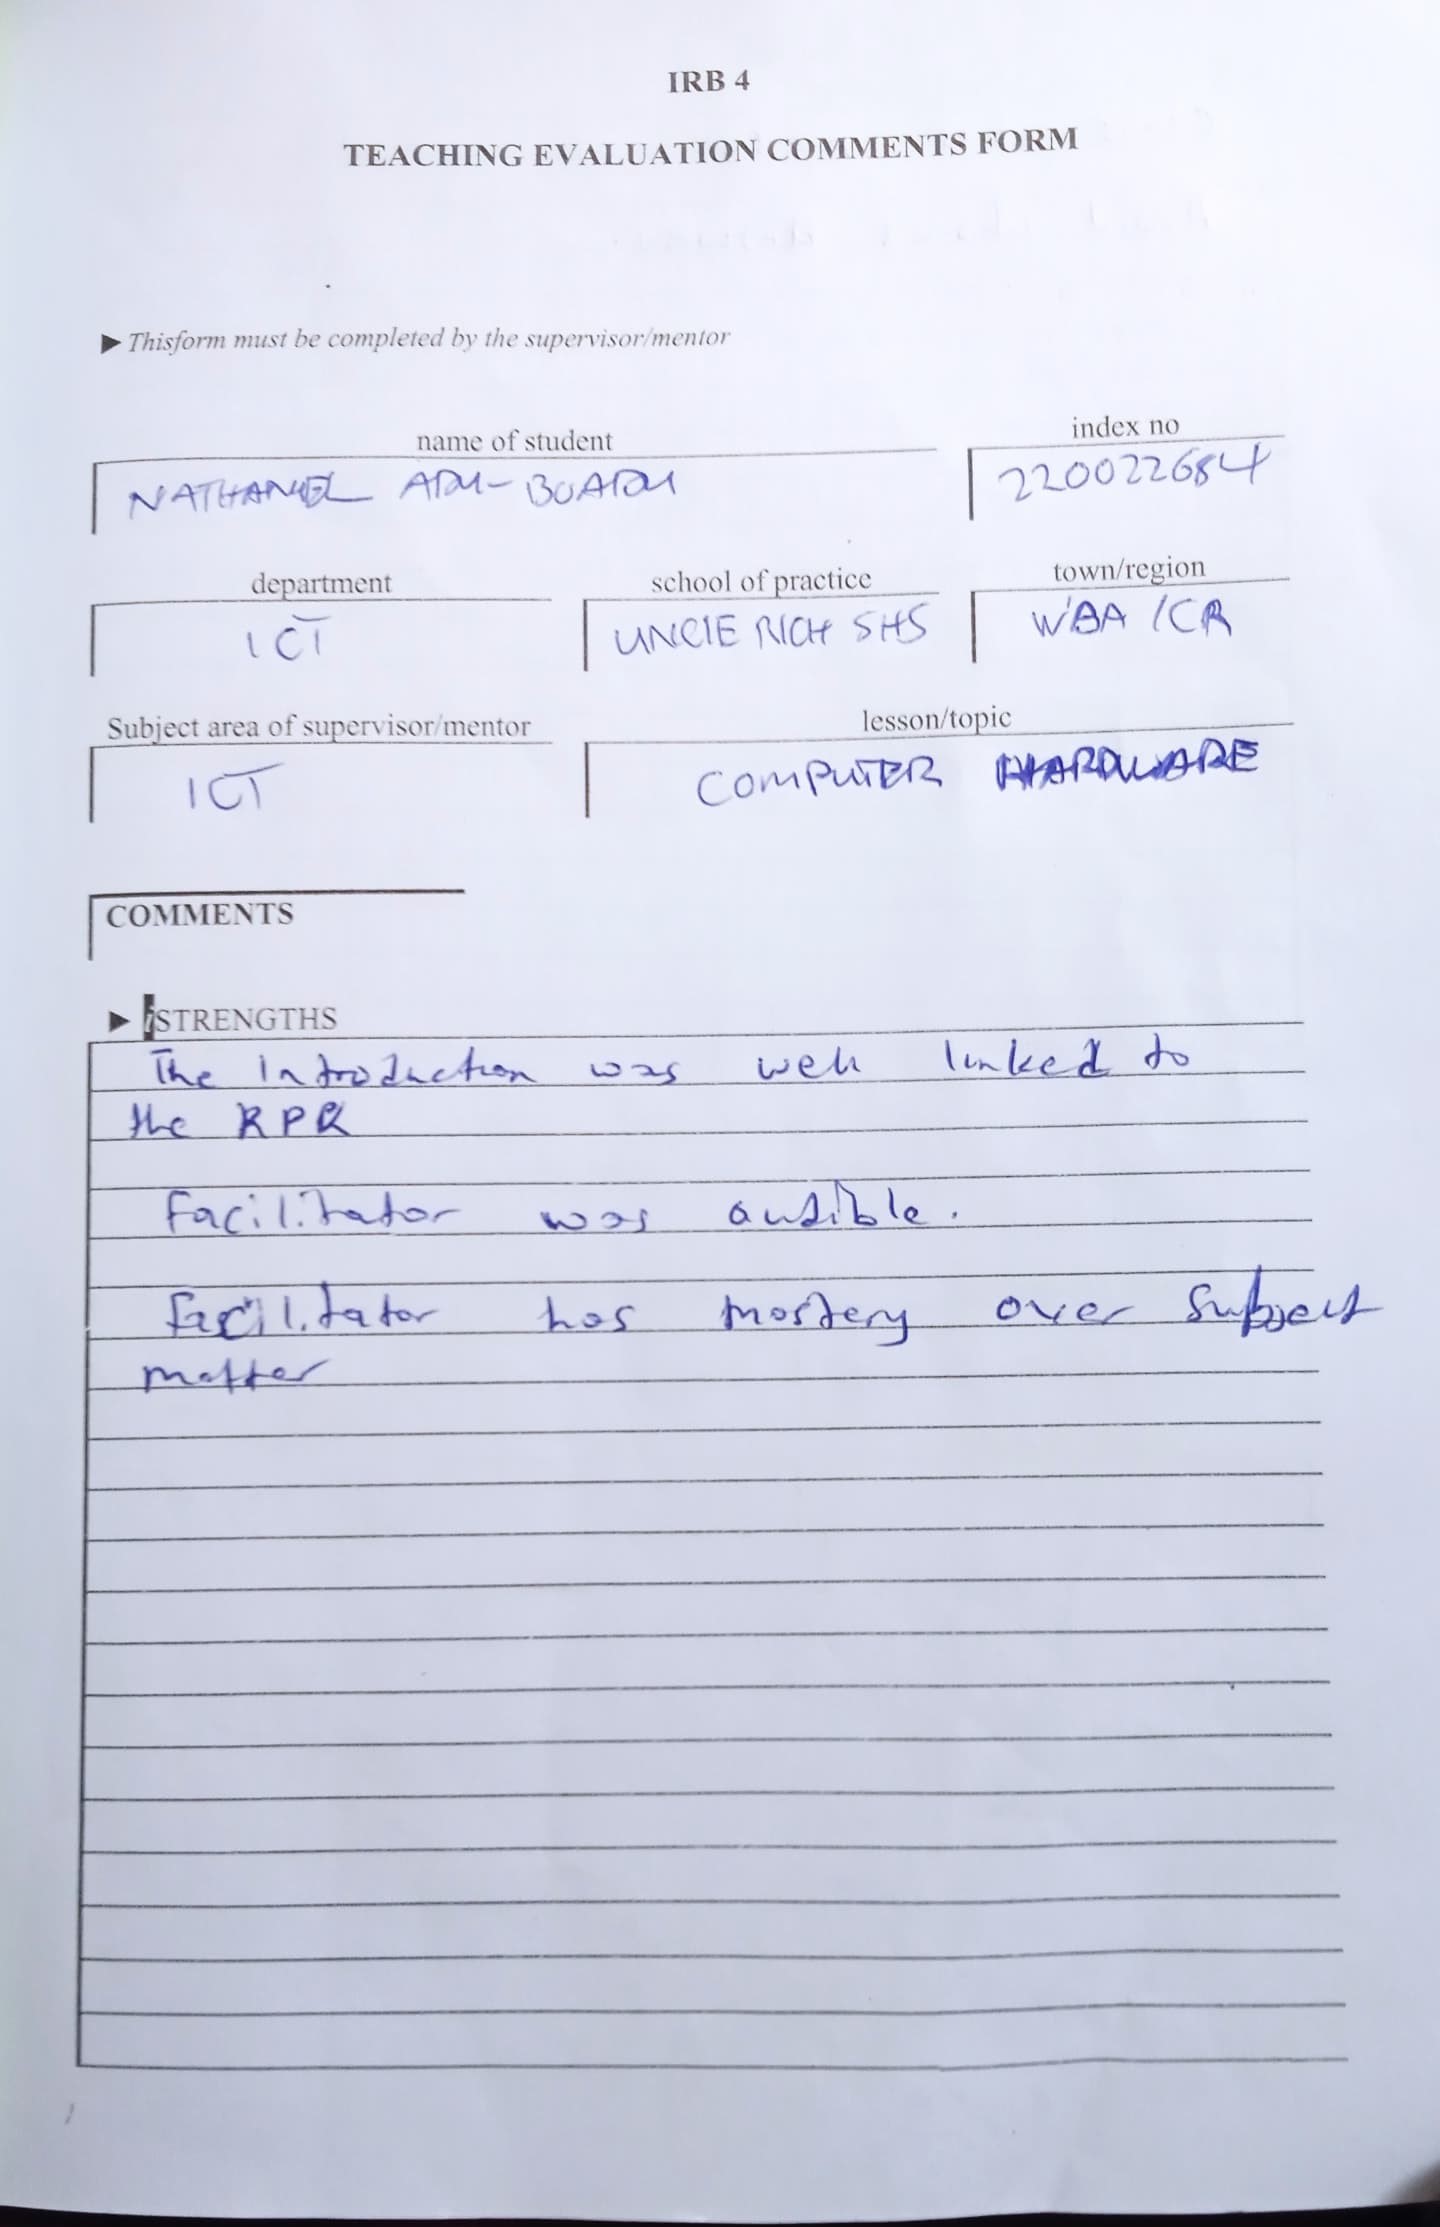 IRB 4
TEACHING EVALUATION COMMENTS FORM
▶ Thisform must be completed by the supervisor/mentor
name of student
index no
NATHANIEL ADU-BOADU
220022684
department
school of practice
town/region
ICT
UNCLE RICH SHS
WBA /CR
Subject area of supervisor/mentor
lesson/topic
ICT
COMPUTER HARDWARE
COMMENTS
▶ STRENGTHS
The Introduction was well linked to
the RPK
Facilitator was audible.
Facilitator has mastery over subject
matter